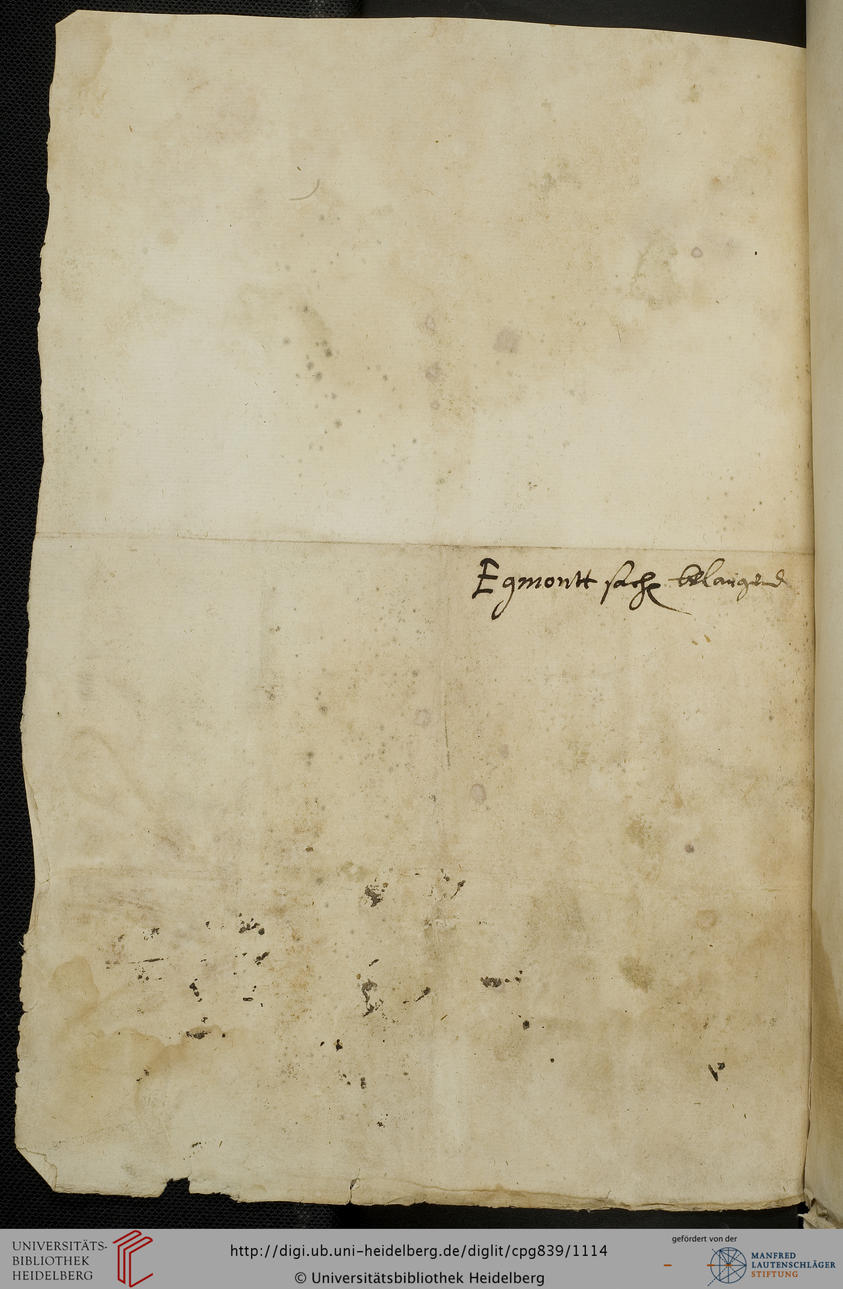 Egmontt sach belangend
UNIVERSITÄTS-
BIBLIOTHEK
HEIDELBERG
http://digi.ub.uni-heidelberg.de/diglit/cpg839/1114
© Universitätsbibliothek Heidelberg
gefördert von der
MANFRED
LAUTENSCHLÄGER
STIFTUNG